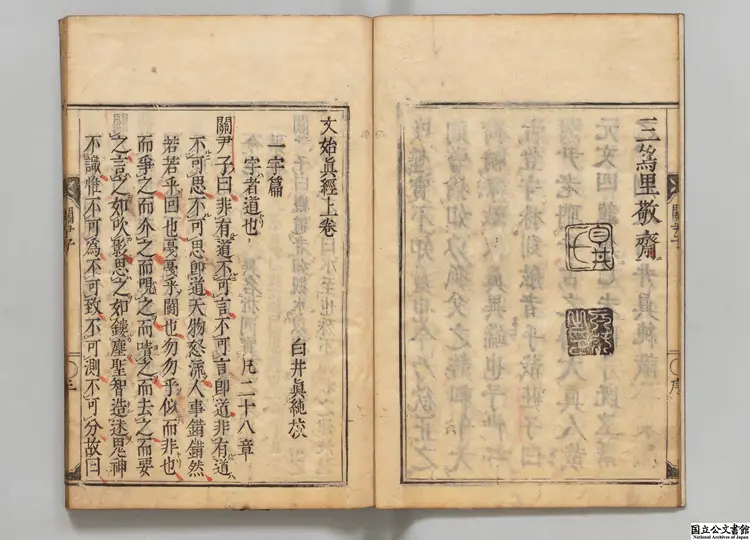 關尹子
序
三里敬齋
文始眞經上卷
白井眞純校
一字篇
一字者道也 凡二十八章
關尹子曰非有道不可言不可言即道非有道
不可思不可思即道天物怒流人事錯錯然
若若乎回也戞戞乎鬪也勿勿乎似而非也
而爭之而介之而哯之而嘖之而去之而要
之言之如吹影思之如鏤塵聖智造迷鬼神
不識惟不可爲不可致不可測不可分故曰
關尹子
国立公文書館
National Archives of Japan